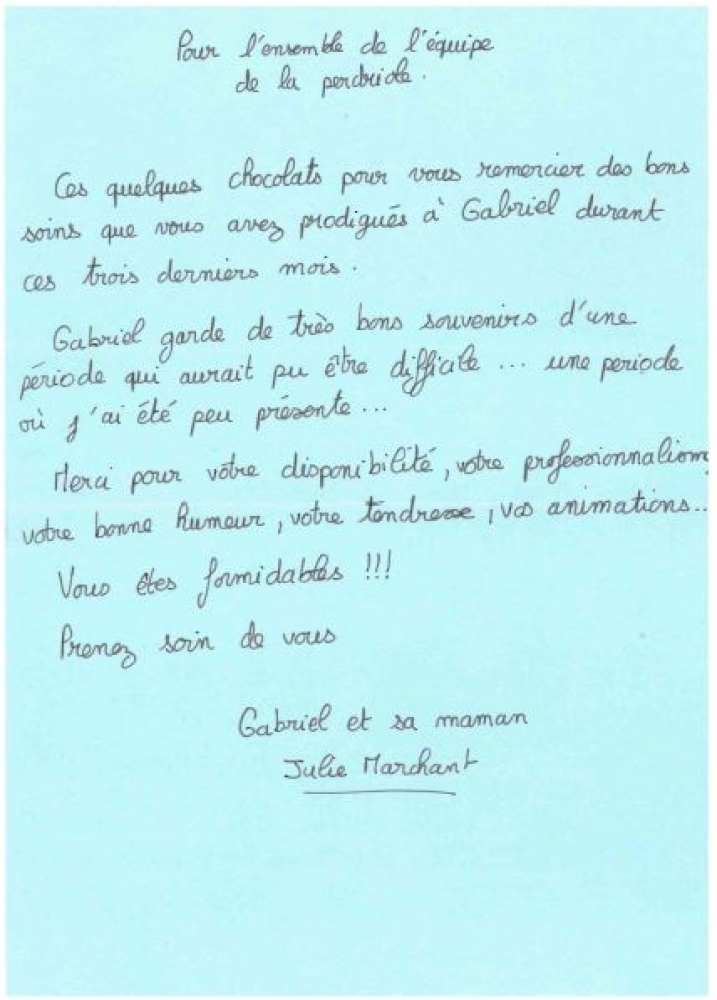 Pour l'ensemble de l'équipe
de la perdriole.
Ces quelques chocolats pour vous remercier des bons
soins que vous avez prodigués à Gabriel durant
ces trois derniers mois.
Gabriel garde de très bons souvenirs d'une
période qui aurait pu être difficile ... une periode
où j'ai été peu présente ...
Merci pour vôtre disponibilité, votre professionnalism
votre bonne humeur, votre tendresse, vos animations..
Vous êtes formidables !!!
Prenez soin de vous
Gabriel et sa maman
Julie Marchant